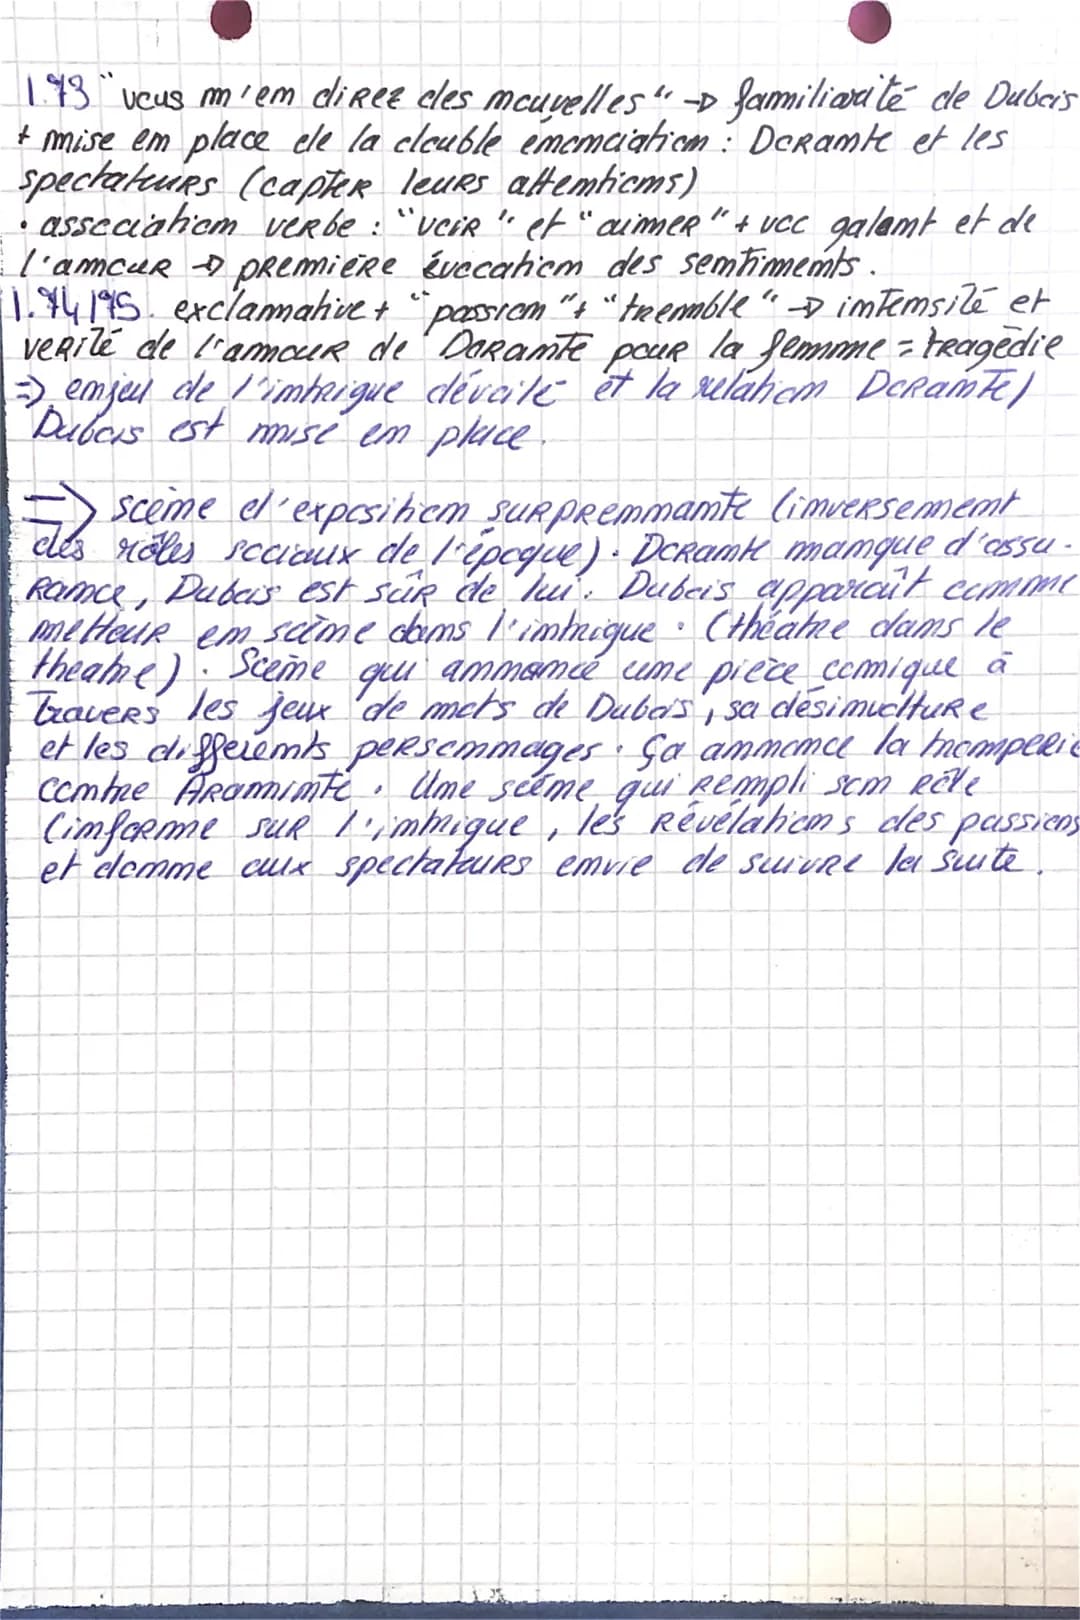 l.73 "vous m'en direz des nouvelles" → familiarité de Dubois
+ mise en place de la double énonciation : Dorante et les
spectateurs (capter leurs attentions)
• association verbe : "voir" et "aimer" + voc galant et de
l'amour → première évocation des sentiments.
l.74/75. exclamative + "passion" + "tremble" → intensité et
verité de l'amour de Dorante pour la femme = tragédie
=> enjeu de l'intrigue dévoilé et la relation Dorante/
Dubois est mise en place.
=> scène d'exposition surprennante (inversement
des rôles sociaux de l'époque). Dorante manque d'assu-
rance, Dubois est sûr de lui. Dubois apparaît comme
metteur en scène dans l'intrigue. (théatre dans le
theatre). Scène qui annonce une pièce comique à
travers les jeux de mots de Dubois, sa désinvolture
et les differents personnages. Ça annonce la tromperie
contre Araminte. Une scène qui rempli son rôle
(informe sur l'intrigue, les révélations des passions
et donne aux spectateurs envie de suivre la suite.